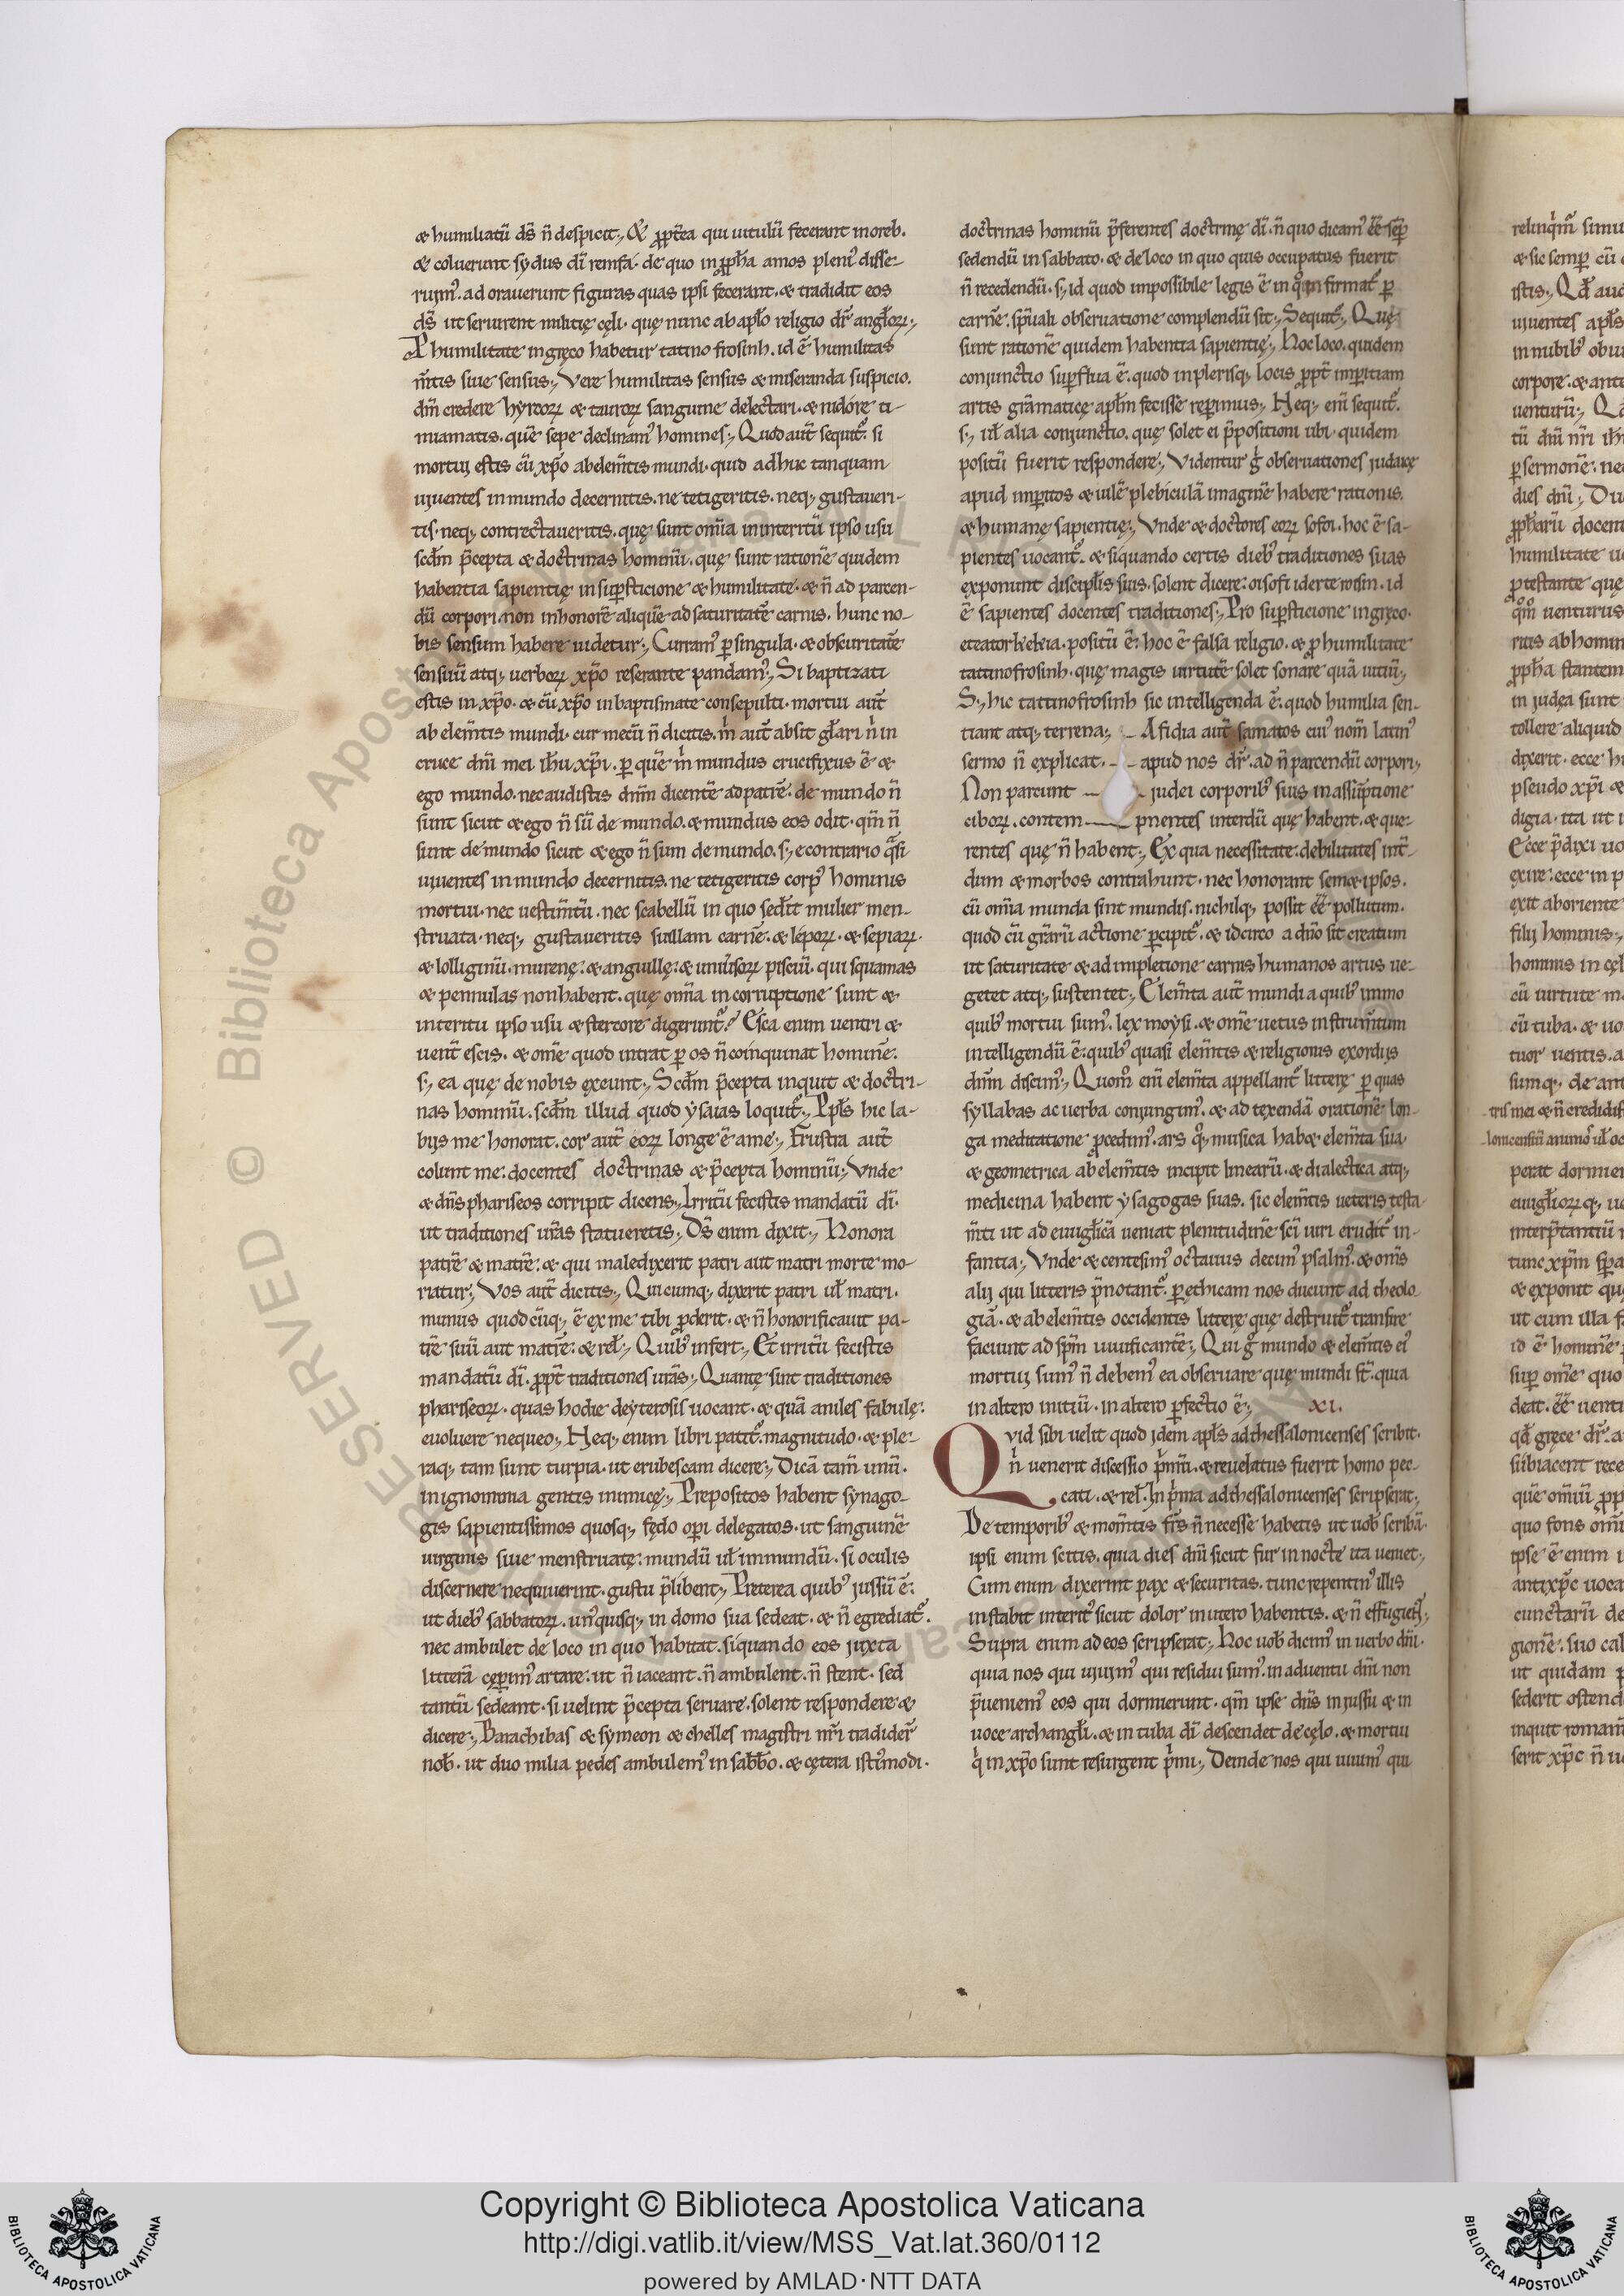 & humiliatū ds̄ n̄ despicit., & ꝓpt̄ea qui uitulū fecerant inoreb.
& coluerunt sydus dī remfa. de quo in ꝓph̄a amos pleni᷒ disse-
ruim᷒. adorauerunt figuras quas ipsi fecerant. & tradidit eos
ds̄ ut seruirent militię cęli. quę nunc ab apl̄o religio dr̄ angl̄oꝝ.,
P humilitate ingręco habetur tatino frosinh. id ē humilitas
m̄tis siue sensus., Vere humilitas sensus & miseranda suspicio.
dn̄m credere hyrcoꝝ & tauroꝝ sanguine delectari. & nidóre ti-
miamatis. quē sepe declinam᷒ homines., Quod aut̄ sequit᷑. si
mortuj estis cū xp̄o ab elem̄tis mundi. quid adhuc tanquam
ujuentes in mundo decernitis. ne tetigeritis. neq; gustaueri-
tis. neq; contrectaueritis. quę sunt om̄ia in interitū ipso usu
scd̄m p̄cepta & doctrinas hominū. quę sunt rationē quidem
habentia sapientię in suꝑsticione & humilitate. & n̄ ad parcen-
dū corpori. non inhonorē aliquē ad saturitatē carnis. hunc no-
bis sensum habere uidetur., Curram᷒ ꝑ singula. & obscuritatē
sensuū atq; uerboꝝ xp̄o reserante pandam᷒., Si baptizati
estis in xp̄o. & cū xp̄o in baptismate consepulti. mortui aut̄
ab elem̄tis mundi. cur mecū n̄ dicitis. m̄ aut̄ absit gl̄ari n̄ in
cruce dn̄i mei ih̄u xp̄i. ꝑ quē m̄ mundus crucifixus ē &
ego mundo. nec audistis dn̄m dicentē ad patrē. de mundo n̄
sunt sicut & ego n̄ sū de mundo. & mundus eos odit. qm̄ n̄
sunt de mundo sicut & ego n̄ sum de mundo. s; e contrario q̄si
ujuentes in mundo decernitis. ne tetigeritis corp᷒ hominis
mortui. nec uestim̄tū. nec scabellū in quo sed̄it mulier men-
struata. neq; gustaueritis suillam carnē. & lépoꝝ. & sepiaꝝ.
& lolliginū. murenę. & anguillę. & uniūsoꝝ pisciū. qui squamas
& pennulas non habent. quę om̄ia in corruptione sunt &
interitu ipso usu & stercore digerunt᷑. Esca enim uentri &
uent̄ escis. & om̄e quod intrat ꝑ os n̄ coinquinat hominē.
s; ea quę de nobis ęxeunt., Scd̄m p̄cepta inquit & doctri-
nas hominū. scd̄m illud quod ysaias loquit᷑., Ppl̄s hic la-
bijs me honorat. cor aut̄ eoꝝ longe ē a me., Frustra aut̄
colunt me. docentes doctrinas & p̄cepta hominū., Vnde
& dn̄s phariseos corripit dicens., Irritū fecistis mandatū dī.
ut traditiones ur̄as statueretis., Ds̄ enim dixit., Honora
patrē & matrē. & qui maledixerit patri aut matri morte mo-
riatur., Vos aut̄ dicitis., Quicumq; dixerit patri ul̄ matri.
munus quodcūq; ē ex me tibi ꝓderit. & n̄ honorificauit pa-
trē suū aut matrē. & rel̄., Quib᷒ infert., Et irritū fecistis
mandatū dī. ꝓpt̄ traditiones ur̄as., Quantę sint traditiones
phariseoꝝ. quas hodie deyterosis uocant. & quā aniles fabulę.
euoluere nequeo., Neq; enim libri patit᷑ magnitudo. & ple-
raq; tam sunt turpia. ut erubescam dicere., Dicā tam̄ unū.
in ignominia gentis inimicę., Prepositos habent synago-
gis sapientissimos quosq; fędo oꝑi delegatos. ut sanguinē
uirginis siue menstruatę. mundū ul̄ immundū. si oculis
discernere nequiuerint. gustu p̄libent., Preterea quib᷒ jussū ē.
ut dieb᷒ sabbatoꝝ. un᷒quisq; in domo sua sedeat. & n̄ egrediat᷑.
nec ambulet de loco in quo habitat. si quando eos juxta
litterā cęꝑim᷒ artare. ut n̄ iaceant. n̄ ambulent. n̄ stent. sed
tantū sedeant. si uelint p̄cepta seruare. solent respondere &
dicere., Barachibas & symeon & chelles magistri nr̄i tradider̄
nob̄. ut duo milia pedes ambulem᷒ in sabb̄o. & cętera isti᷒modi.
doctrinas hominū p̄ferentes doctrinę dī. n̄ quo dicam᷒ ēe semꝑ
sedendū in sabbato. & de loco in quo quis occupatus fuerit
n̄ recedendū. s; id quod impossibile legis ē in q̊ infirmat᷑ ꝑ
carnē. sp̄uali obseruatione complendū sit., Sequit᷑., Quę
sunt rationē quidem habentia sapientię., Hoc loco. quidem
conjunctio suꝑflua ē. quod in plerisq; locis ꝓpt̄ imꝑitiam
artis gra̅maticę apl̄m fecisse reꝑimus., Neq; eni̅ sequit᷑.
s; ul̄ alia conjunctio. quę solet ei p̄positioni ubi. quidem
positū fuerit respondere., Videntur g̊ obseruationes judaicę
apud imꝑitos & uilē plebiculā imaginē habere rationis.
& humanę sapientię., Vnde & doctores eoꝝ sofoi. hoc ē sa-
pientes uocant᷑. & siquando certis dieb᷒ traditiones suas
exponunt discipl̄is suis. solent dicere. oisofi iderterosin. id
ē sapientes docentes traditiones., Pro suꝑsticione ingręco.
eteatorkekeia. positū ē. hoc ē falsa religio. & ꝓ humilitate
tatinofrosinh. quę magis uirtutē solet sonare quā uitiū.,
S; hic tattinofrosinh sic intelligenda ē. quod humilia sen-
tiant atq; terrena., Afidia aut̄ samatos cui᷒ nom̄ latin᷒
sermo n̄ explicat. apud nos dr̄. ad n̄ parcendū corpori.,
Non parcunt judei corporib᷒ suis in assūptione
ciboꝝ. contem pnentes interdū quę habent. & que-
rentes quę n̄ habent., Ex qua necessitate. debilitates int̄-
dum & morbos contrahunt. nec honorant sem& ipsos.
cū om̄ia munda sint mundis. nichilq; possit ēe pollutum.
quod cū gr̄arū actione ꝑcipit᷑. & idcirco a dn̄o sit creatum
ut saturitate & adimpletione carnis humanos artus ue-
getet atq; sustentet., Elem̄ta aut̄ mundi a quib᷒ immo
quib᷒ mortui sum᷒. lex moysi. & om̄e uetus instrum̄tum
intelligendū ē. quib᷒ quasi elem̄tis & religionis exordijs
dn̄m discim᷒., Quom̊ eni̅ elem̄ta appellant᷑ litterę ꝑ quas
syllabas ac uerba conjungim᷒. & ad texendā orationē lon-
ga meditatione ꝓcedim᷒. ars q̊; musica hab& elem̄ta sua
& geometrica ab elem̄tis incipit linearū. & dialectica atq;
medicina habent ysagogas suas. sic elem̄tis ueteris testa-
m̄ti ut ad euugl̄icā ueniat plenitudinē sc̄i uiri erudit᷑ in-
fantia., Vnde & centesim᷒ octauus decim᷒ psalm᷒. & om̄s
alij qui litteris p̄notant᷑. ꝑ ethicam nos ducunt ad theolo
giā. & ab elem̄tis occidentis litterę quę destruit᷑ transire
faciunt ad sp̄m uiuificantē., Qui g̊ mundo & elem̄tis ei᷒
mortuj sum᷒ n̄ debem᷒ ea obseruare quę mundi st̄. quia
in altero initiū. in altero ꝑfectio ē., xi.
Qvid sibi uelit quod jdem apl̄s ad thessalonicenses scribit.
n̄ uenerit discessio p̄mū. & reuelatus fuerit homo pec-
cati. & rel̄. In p̄ma ad thessalonicenses scripserat.,
De temporib᷒ & mom̄tis fr̄s n̄ necesse habetis ut uob̄ scribā.
ipsi enim scitis. quia dies dn̄i sicut fur in nocte ita ueniet.,
Cum enim dixerint pax & securitas. tunc repentin᷒ illis
instabit interit᷒ sicut dolor in utero habentis. & n̄ effugient.,
Supra enim ad eos scripserat., Hoc uob̄ dicim᷒ in uerbo dn̄i.
quia nos qui ujuim᷒ qui residui sum᷒. in aduentu dn̄i non
p̄ueniem᷒ eos qui dormierunt. qm̄ ipse dn̄s in jussu & in
uoce archangl̄i. & in tuba dī descendet de cęlo. & mortui
q̄ in xp̄o sunt resurgent p̄mi., Deinde nos qui uiuim᷒ qui
Copyright © Biblioteca Apostolica Vaticana
http://digi.vatlib.it/view/MSS_Vat.lat.360/0112
powered by AMLAD·NTT DATA